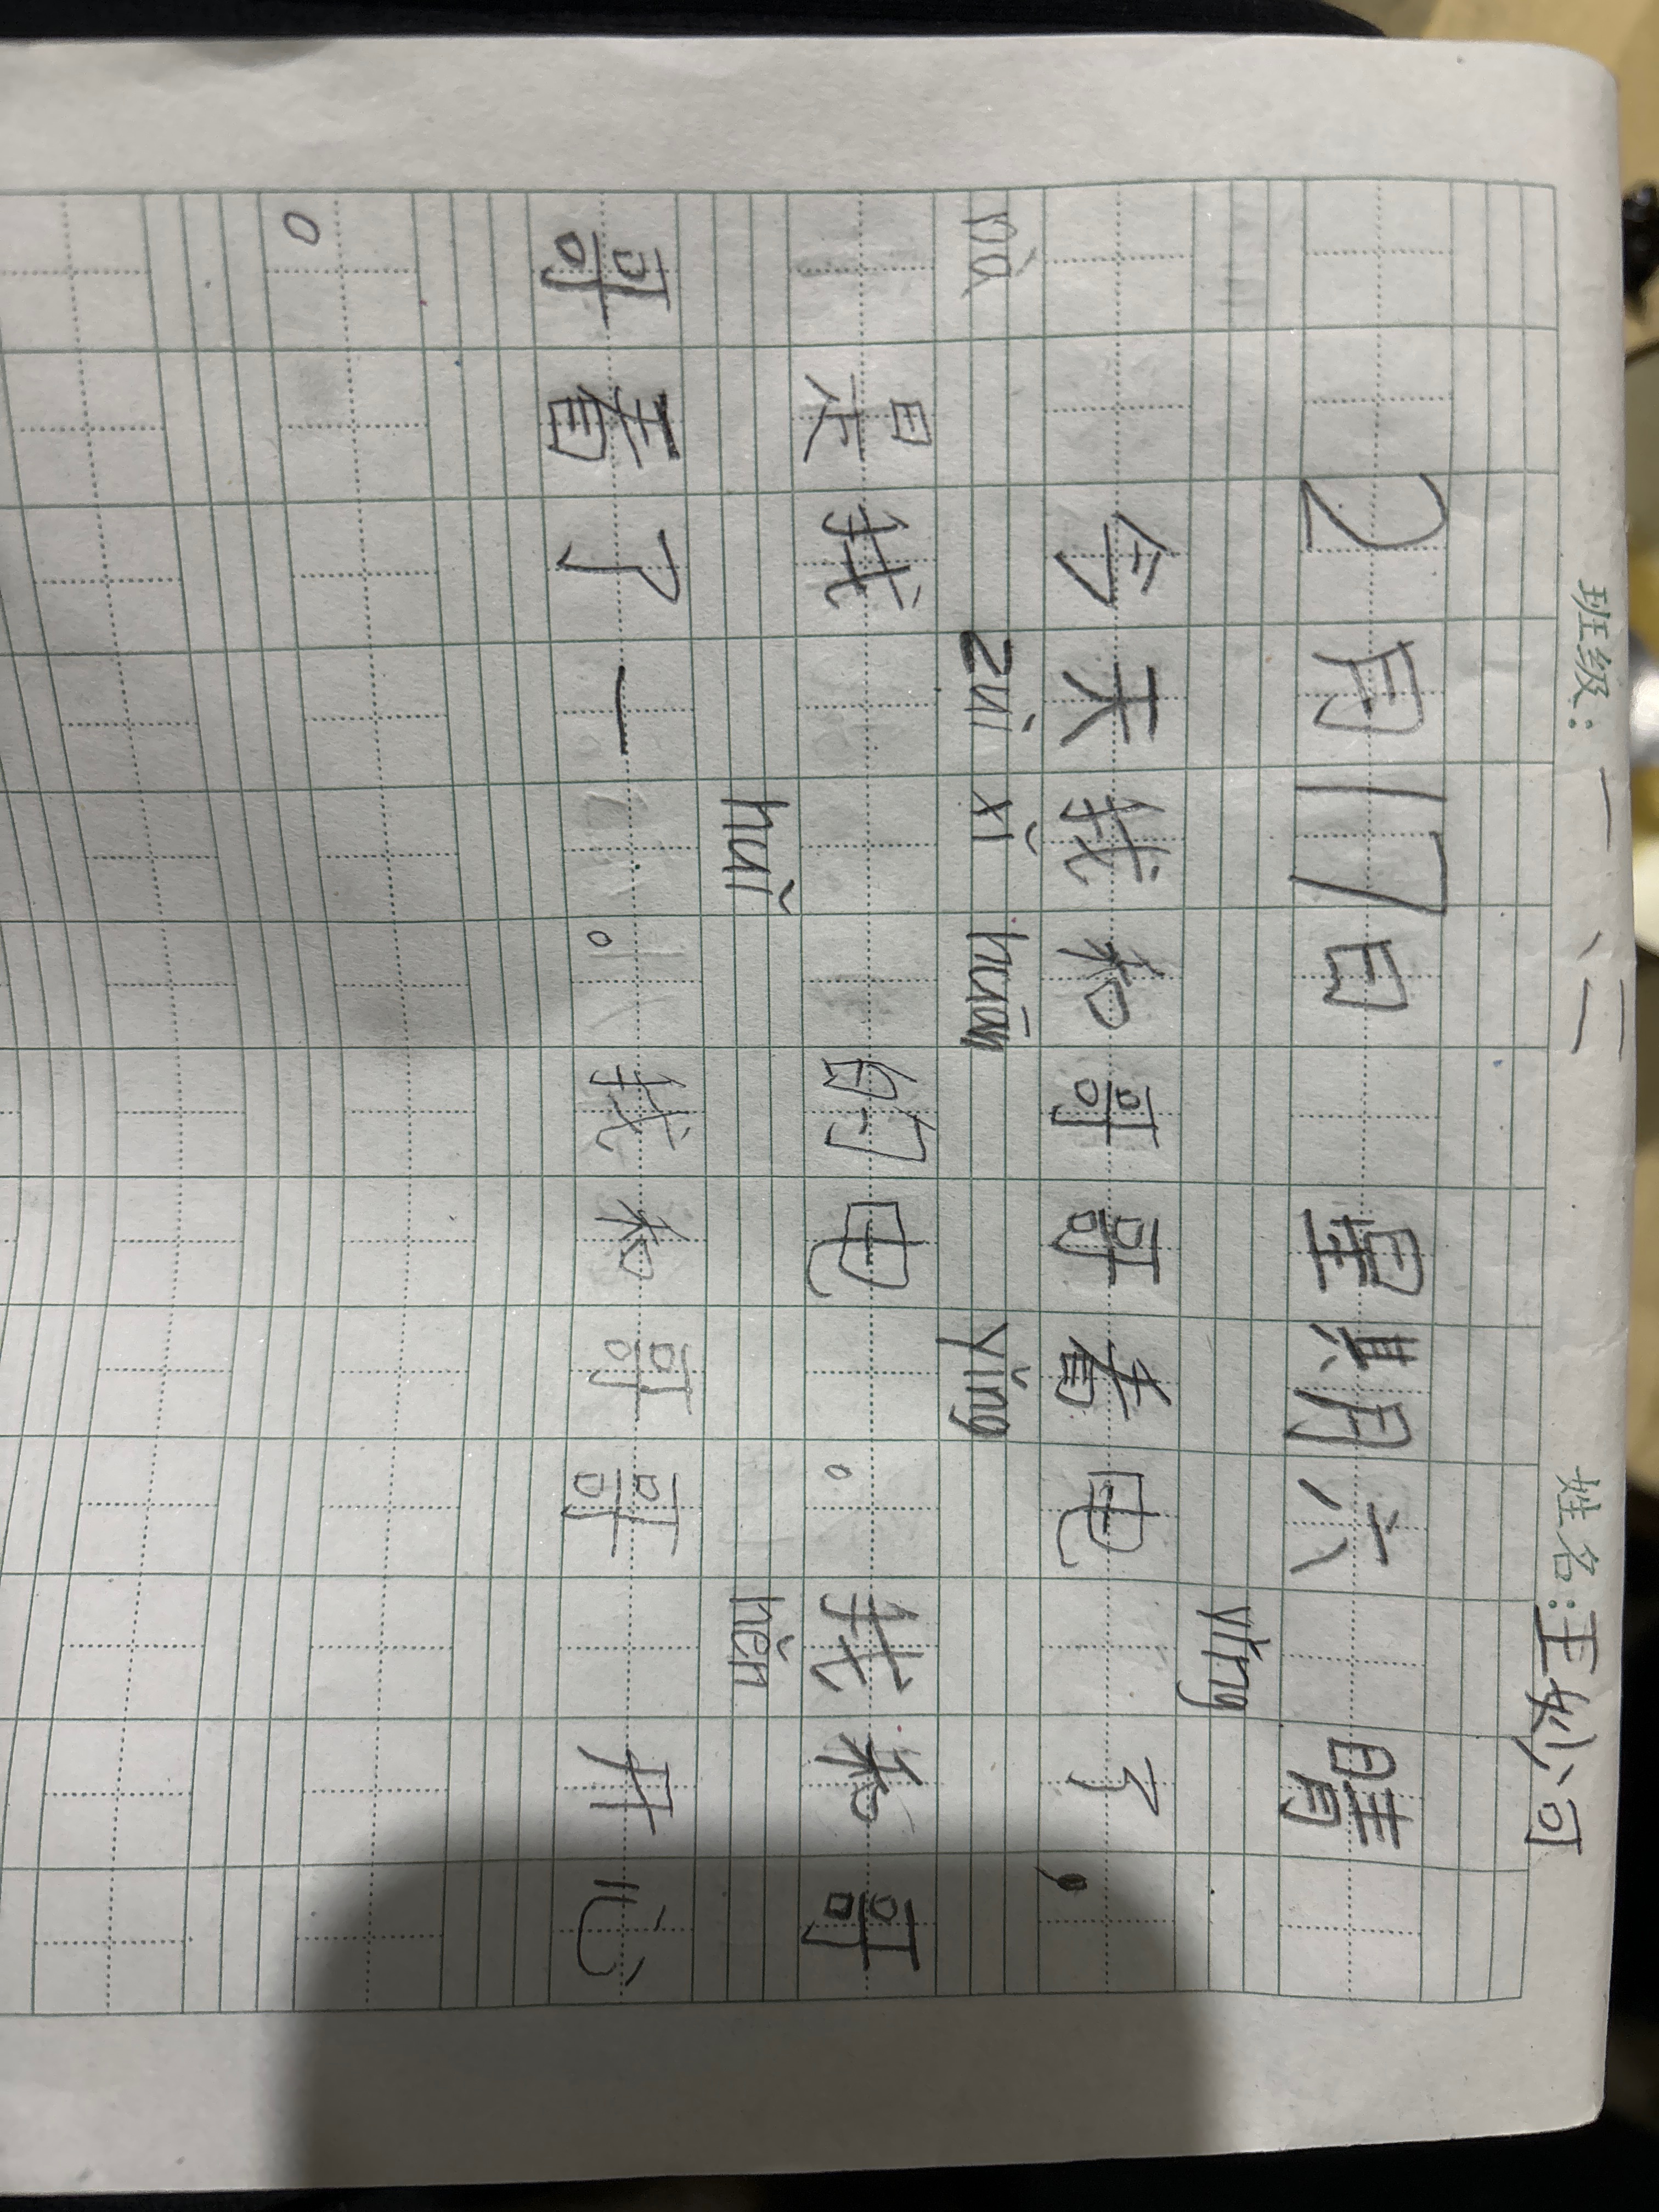 班级：一、二 姓名：王妙可
2月17日 星期六 晴
yǐng
今天我和哥哥看电 了，
nà zuì xǐ huān yǐng
是我 的电 。我和哥
huǐ hěn
哥看了一 。我和哥哥 开心
。